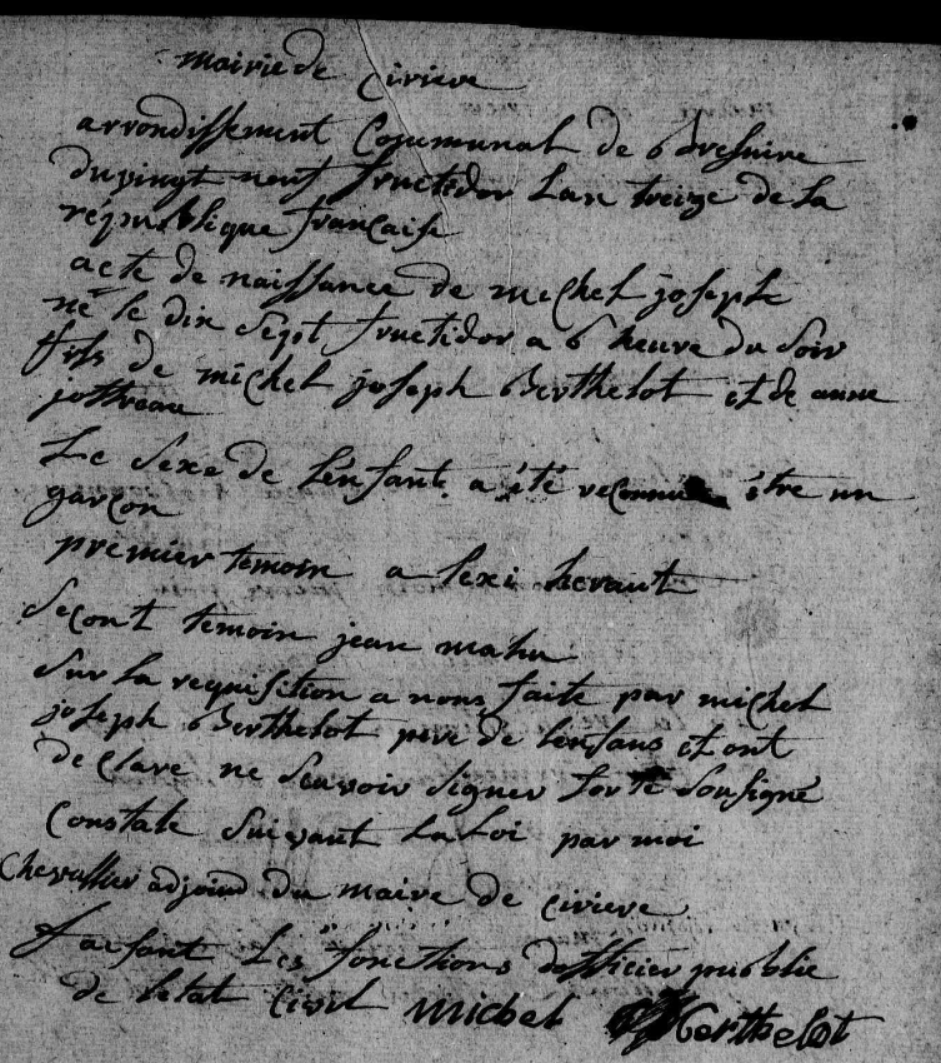 mairie de Cirieve
arrondissement Communal de Bresuire
du vingt neuf fructidor Lan treize de La
république françaisse
acte de naissance de michel joseph
né le dix Sept fructidor a 6 heure du Soir
fils de michel joseph Berthelot et de anne
jottreau
Le Sexe de L'enfant a été reconnu être un
garçon
premier temoin a lexi
Secont temoin jean mahu
Sur La requisition a nous faite par michel
joseph Berthelot pere de lenfans et ont
de Clare ne Seavoir Signer Sousigné
Constate Suivant La Loi par moi
Chevallier adjoind du maire de cirieve
faisant Les fonctions dofficier publie
de letat Civil michel Berthelot